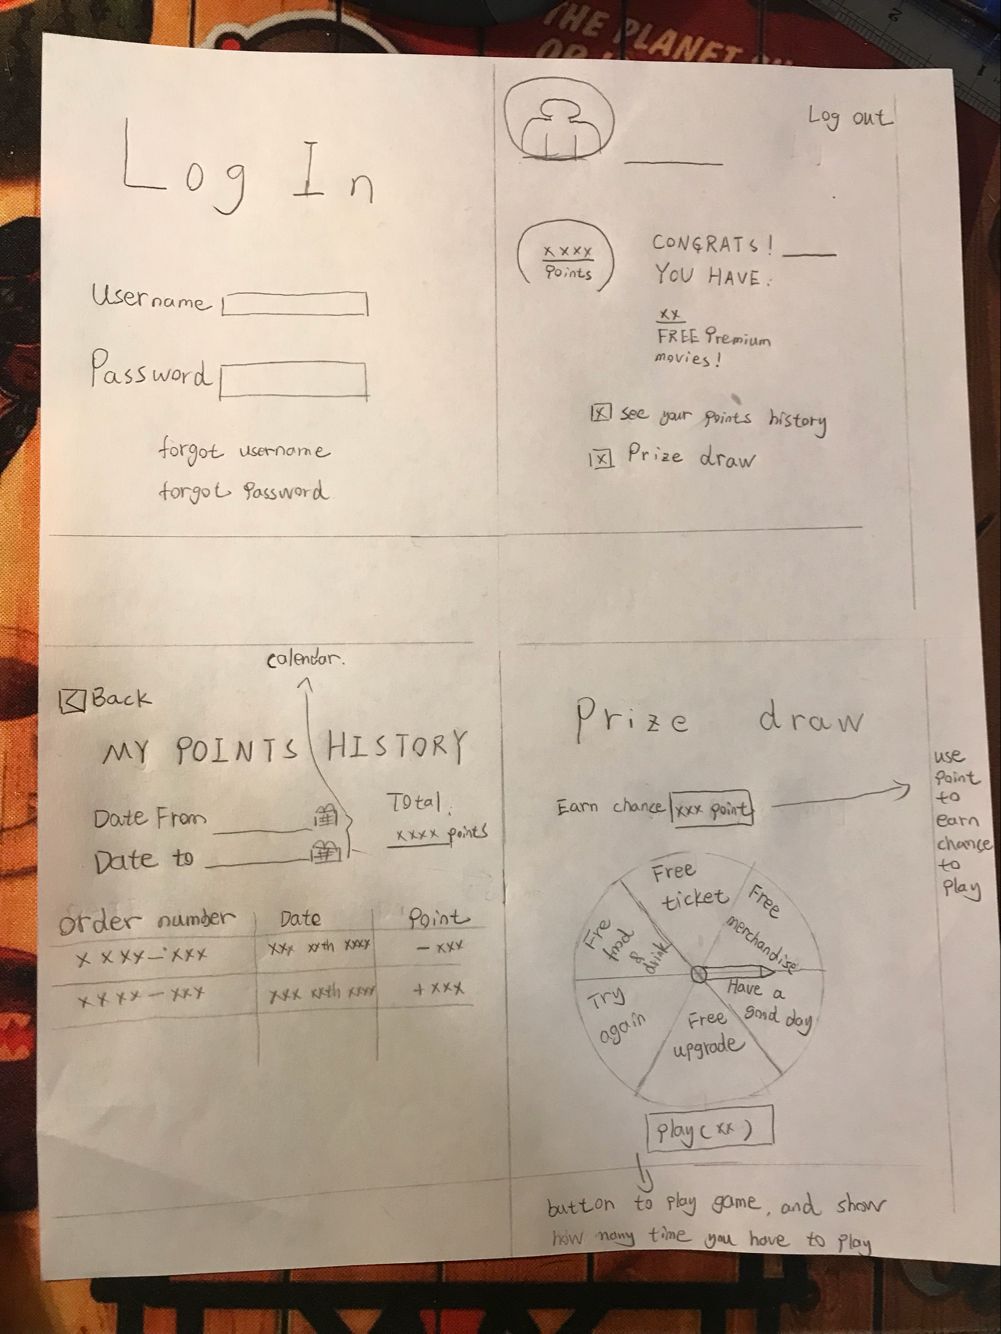 THE PLANET
Log In
Username
Password
forgot username
forgot Password
Log out
xxxx
Points
CONGRATS! ____
YOU HAVE:
xx
FREE Premium
movies!
[x] see your points history
[x] Prize draw
calendar.
[<] Back
MY POINTS HISTORY
Date From ________
Date to ________
Total:
xxxx points
order number Date Point
xxxy-xxx xxx xxth xxxx -xxx
xxxx-xxx xxx xxth xxxx +xxx
Prize draw
Earn chance xxx point
use
point
to
earn
chance
to
play
Free
ticket
Free
merchandise
Have a
good day
Free
upgrade
Try
again
Fre
food
&
drink
play(xx)
button to play game, and show
how many time you have to play